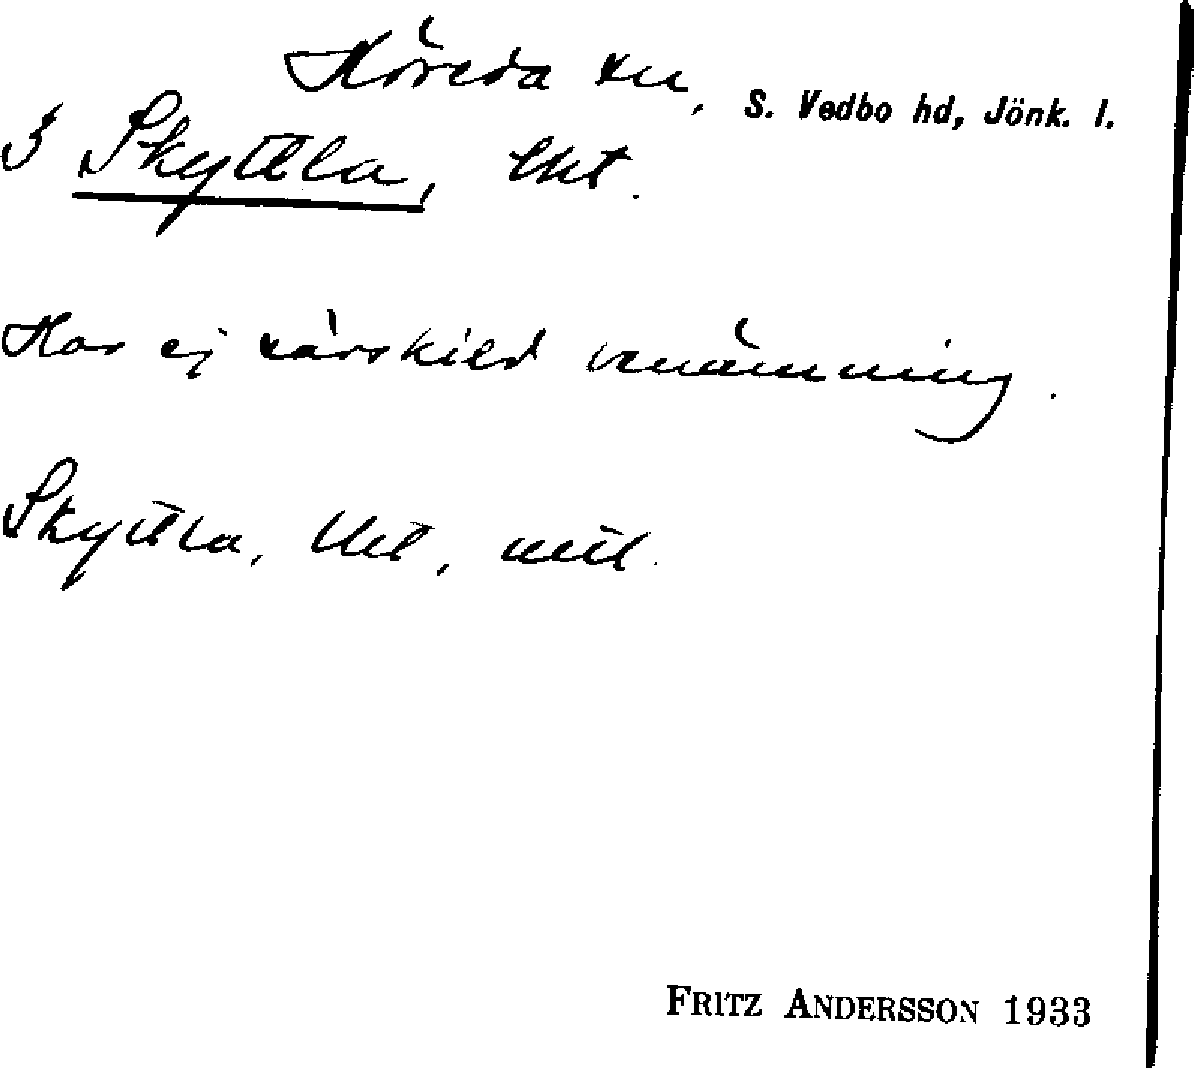 Höreda sn, S. Vedbo hd, Jönk. l.
3 Skyttla, Ukt.
Har ej särskild benämning.
Skyttla, Ukt, mtl.
FRITZ ANDERSSON 1933